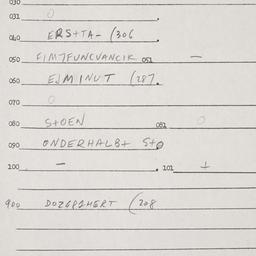 030
031 0
040 ERSTTA- (306
050 FIMTFUNCVANCIK 051 —
060 EJMINUT (287.
070 0
080 STOEN 081 0
090 ONDERHALBT STO
100 — 101 +
900 (308